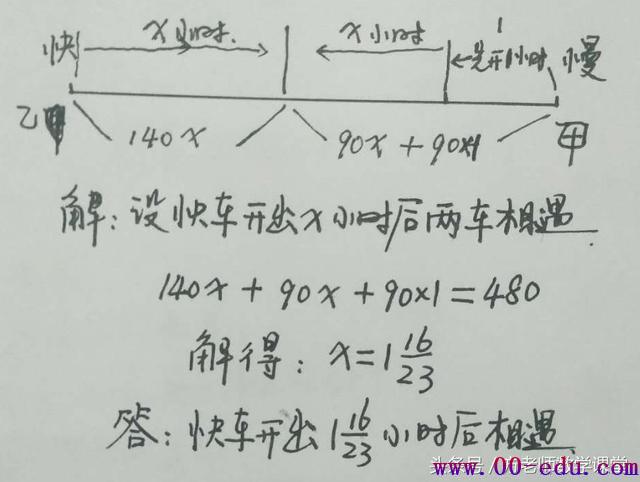 快 x小时 x小时 先开1小时 慢
乙 140x 90x + 90×1 甲
解：设快车开出x小时后两车相遇
140x + 90x + 90×1 = 480
解得：x = 1 16/23
答：快车开出 1 16/23 小时后相遇
www.00-edu.com